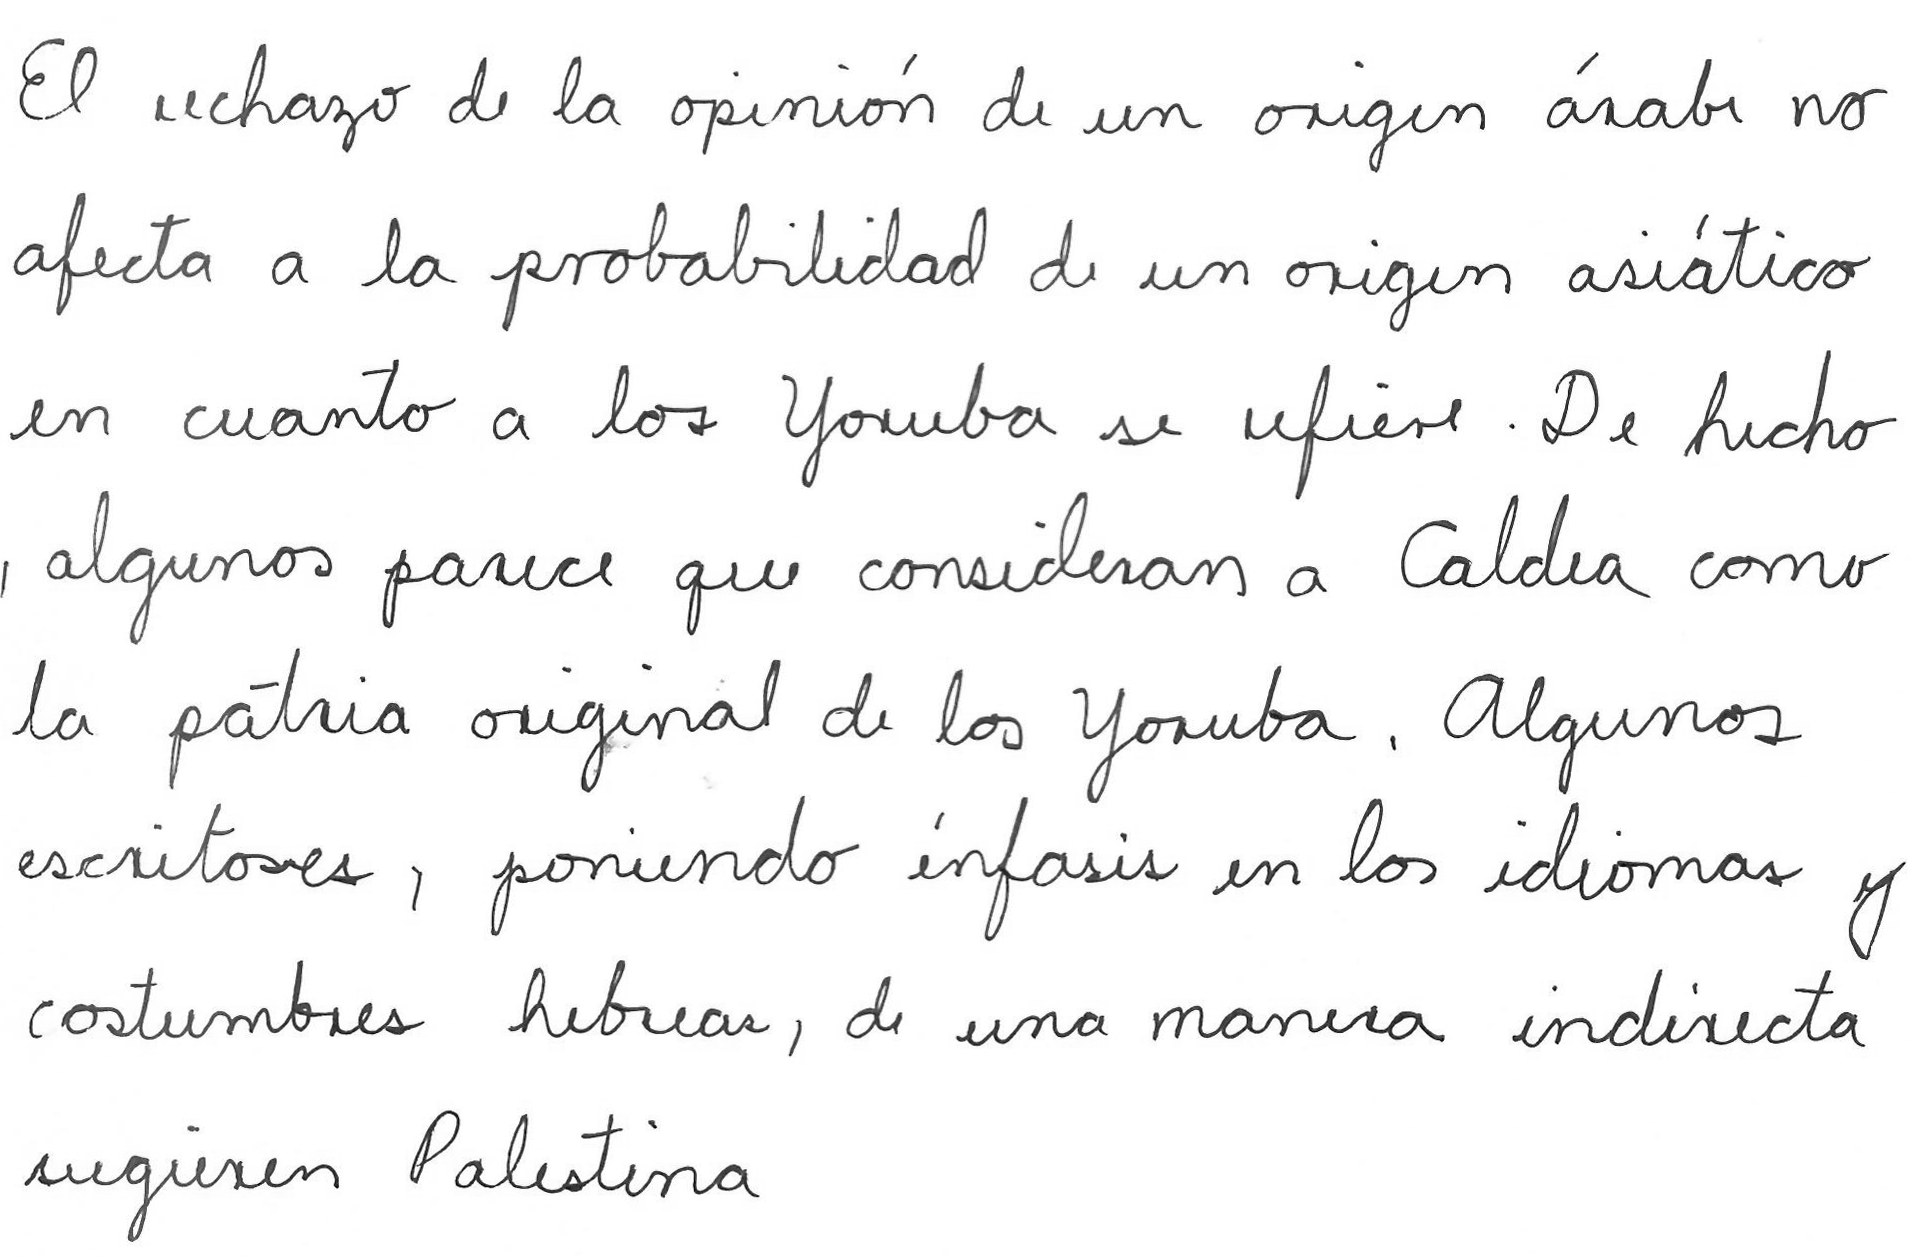 El rechazo de la opinión de un origen árabe no
afecta a la probabilidad de un origen asiático
en cuanto a los Yoruba se refiere. De hecho
, algunos parece que consideran a Caldea como
la pátria original de los Yoruba. Algunos
escritores, poniendo énfasis en los idiomas y
costumbres hebreas, de una manera indirecta
sugieren Palestina